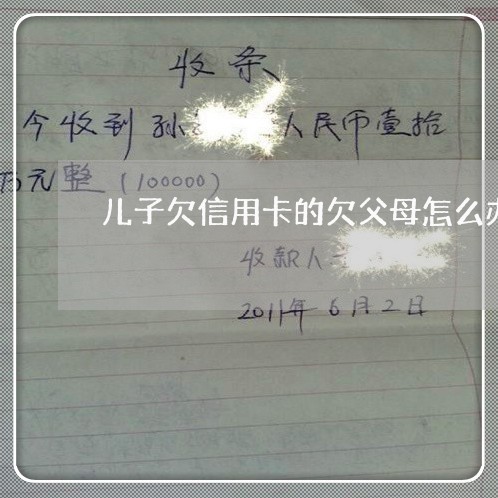 收条
今收到孙 人民币壹拾
万元整（100000）
儿子欠信用卡的欠父母怎么办
收款人
2011年6月2日